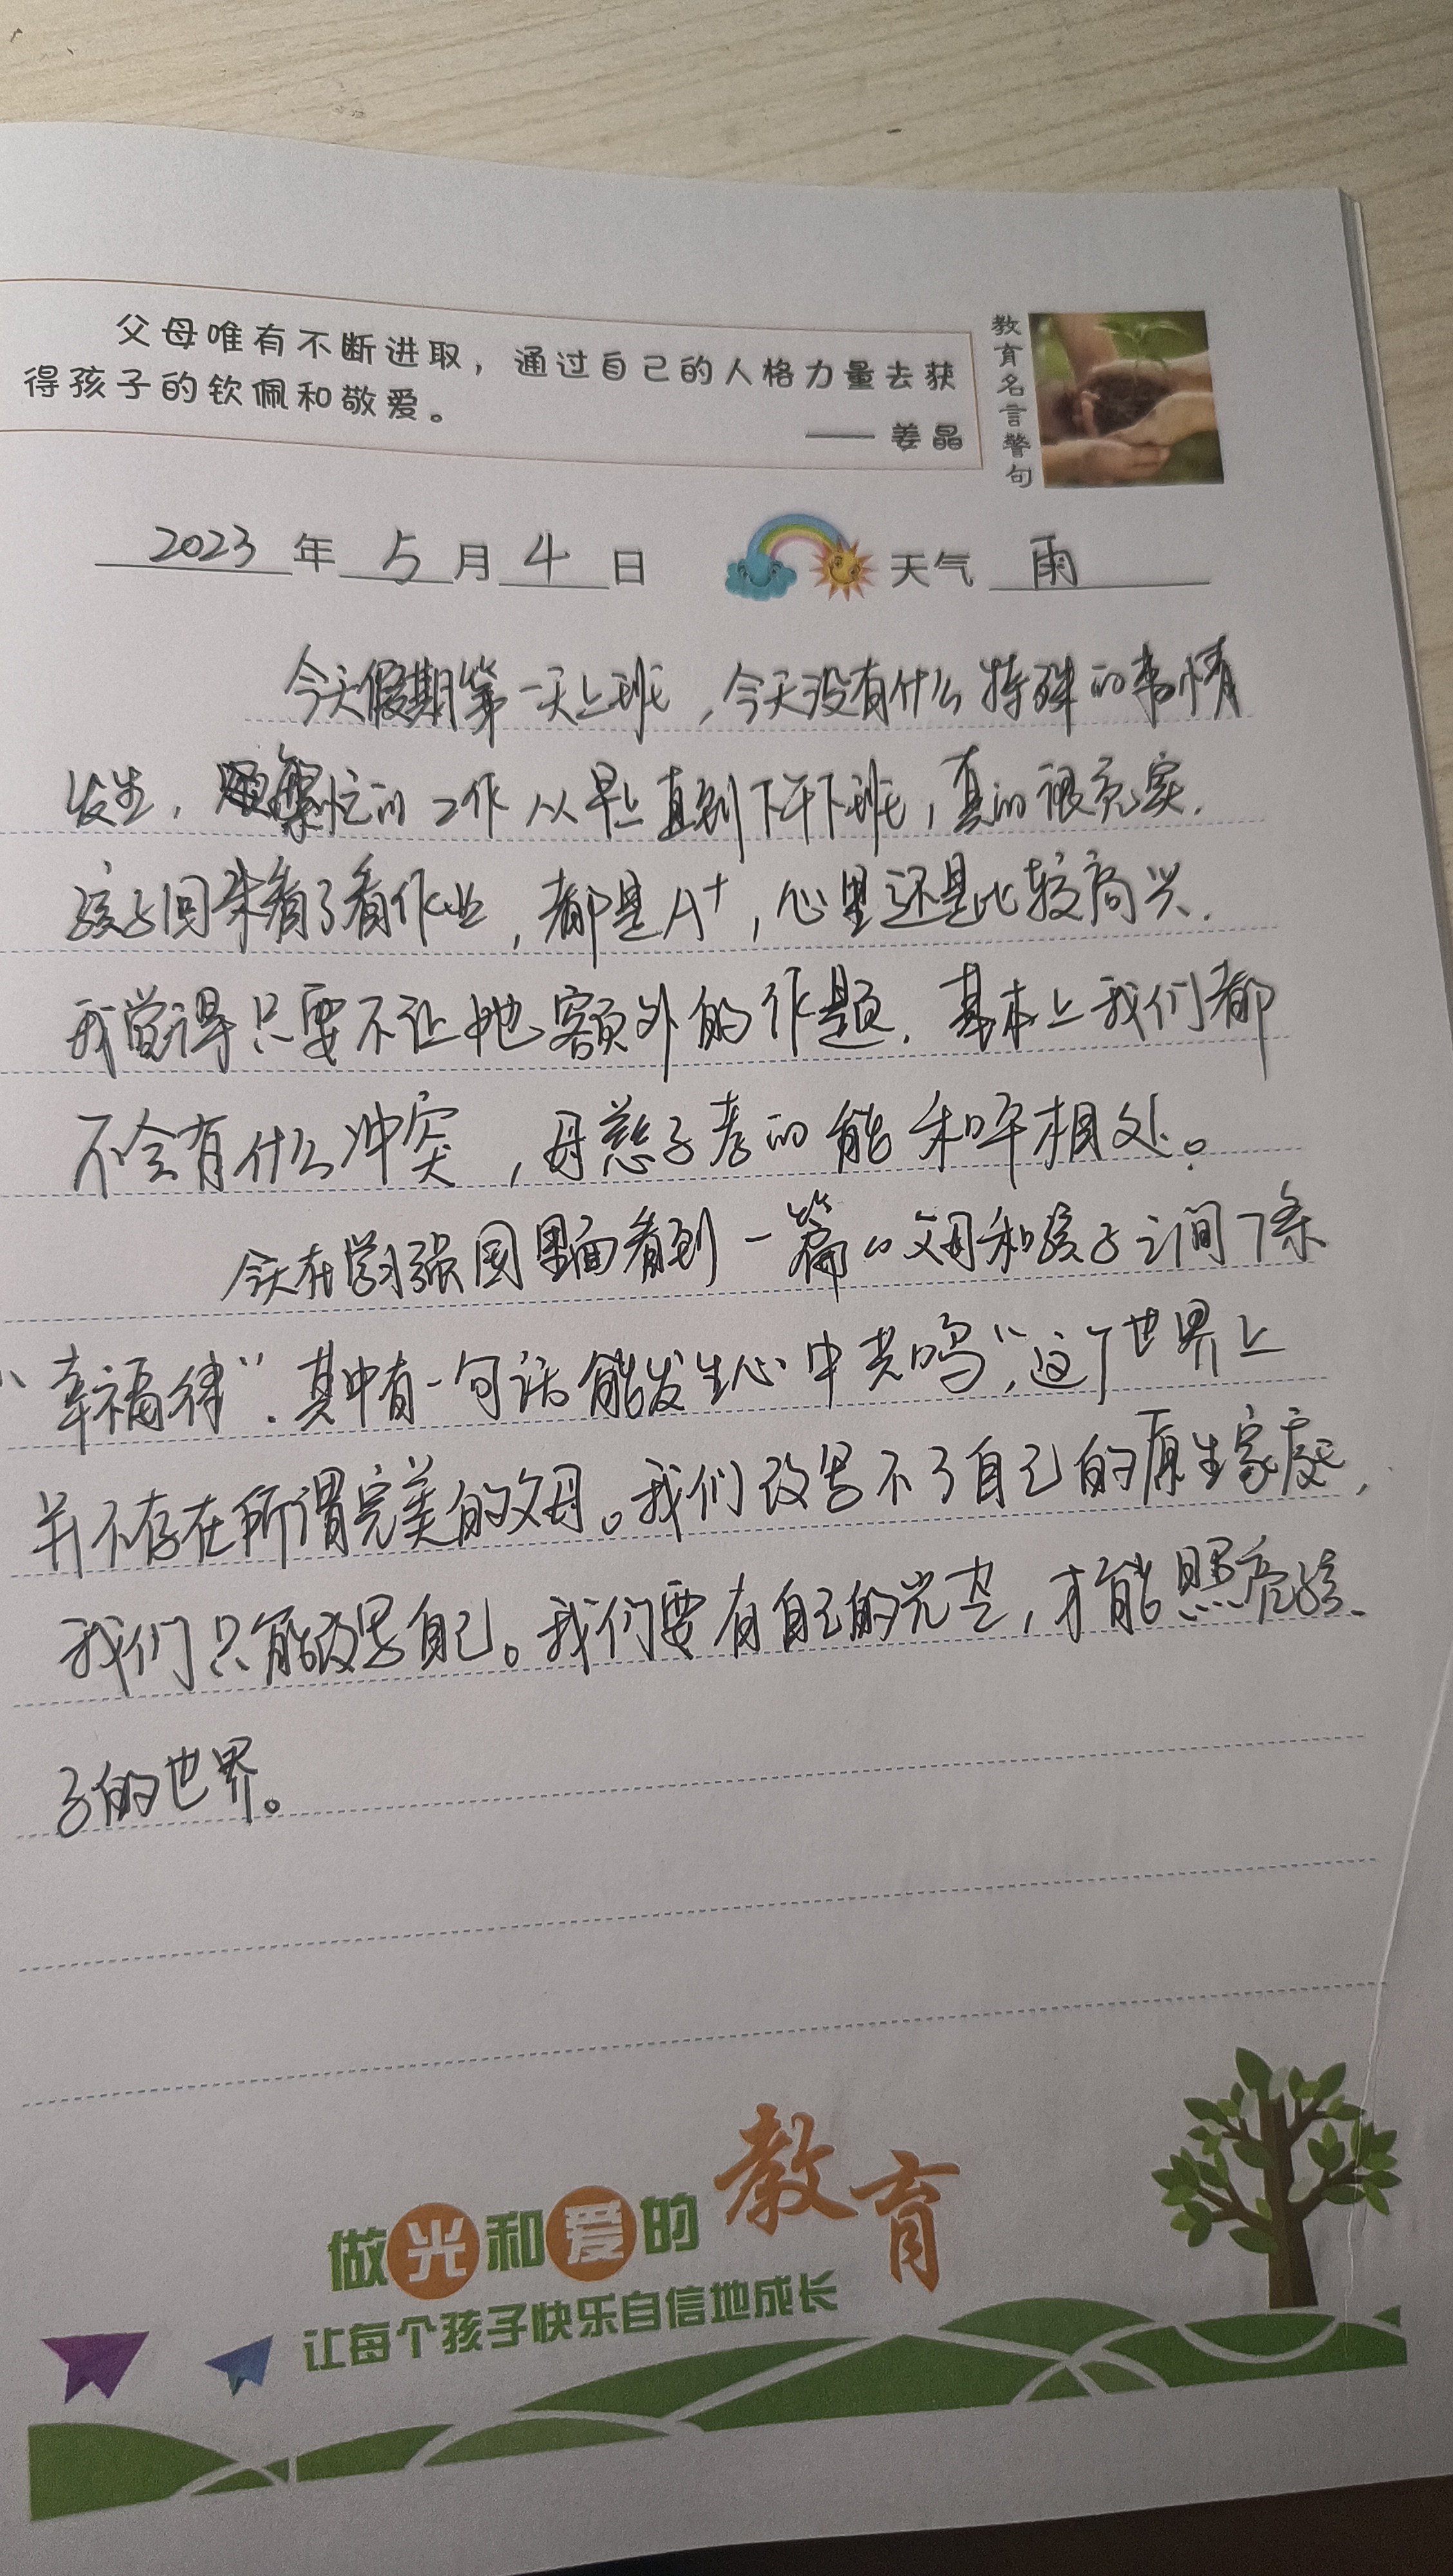 父母唯有不断进取，通过自己的人格力量去获
得孩子的钦佩和敬爱。
—— 姜晶
教育名言警句
2023 年 5 月 4 日 天气 雨
今天假期第一天上班，今天没有什么特殊的事情
发生，繁忙的工作从早上直到下午下班，真的很充实．
孩子回来看了看作业，都是A+，心里还是比较高兴．
我觉得只要不让她额外的作题．基本上我们都
不会有什么冲突，母慈子孝的能和平相处。
今天在学习强国里面看到一篇“父母和孩子之间7条
“幸福律”．其中有一句话能发生心中共鸣“，这个世界上
并不存在所谓完美的父母。我们改变不了自己的原生家庭，
我们只能改变自己。我们要有自己的光芒，才能照亮孩
子的世界。
做光和爱的教育
让每个孩子快乐自信地成长